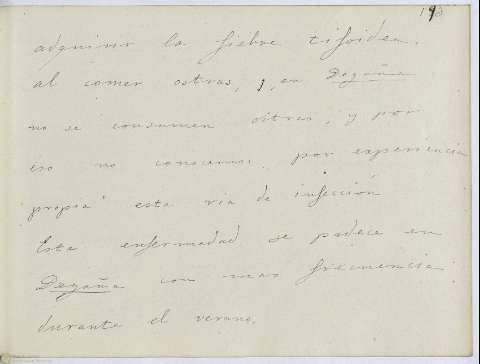 adquirir la fiebre tifoidea.
al comer ostras, y, en Degaña
no se consumen ostras, y por
eso no conocemos por experiencia
propia esta via de infección
Esta enfermedad se padece en
Degaña con mas frecuencia
durante el verano.